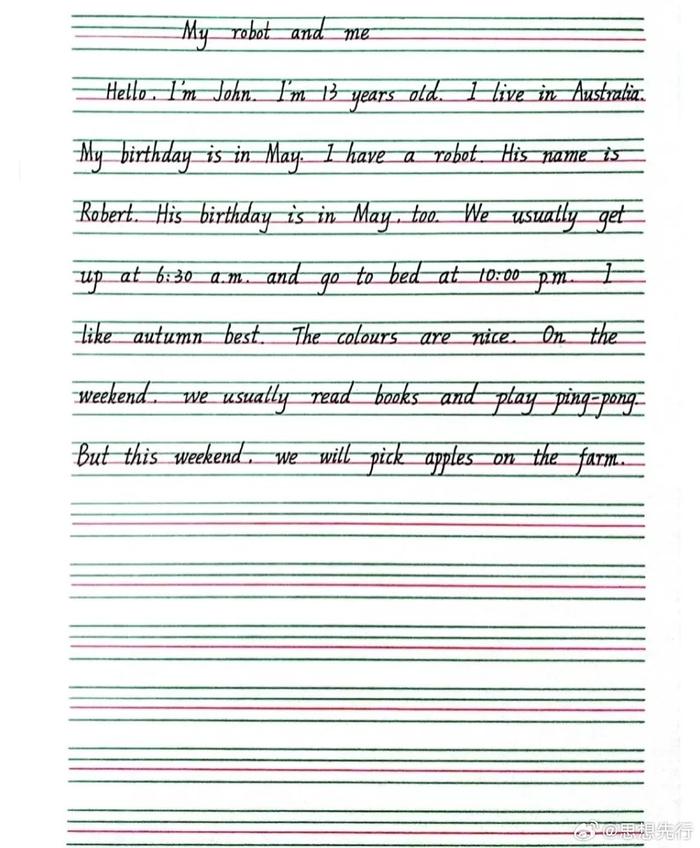 My robot and me
Hello. I'm John. I'm 13 years old. I live in Australia.
My birthday is in May. I have a robot. His name is
Robert. His birthday is in May, too. We usually get
up at 6:30 a.m. and go to bed at 10:00 p.m. I
like autumn best. The colours are nice. On the
weekend, we usually read books and play ping-pong.
But this weekend, we will pick apples on the farm.
@思想先行